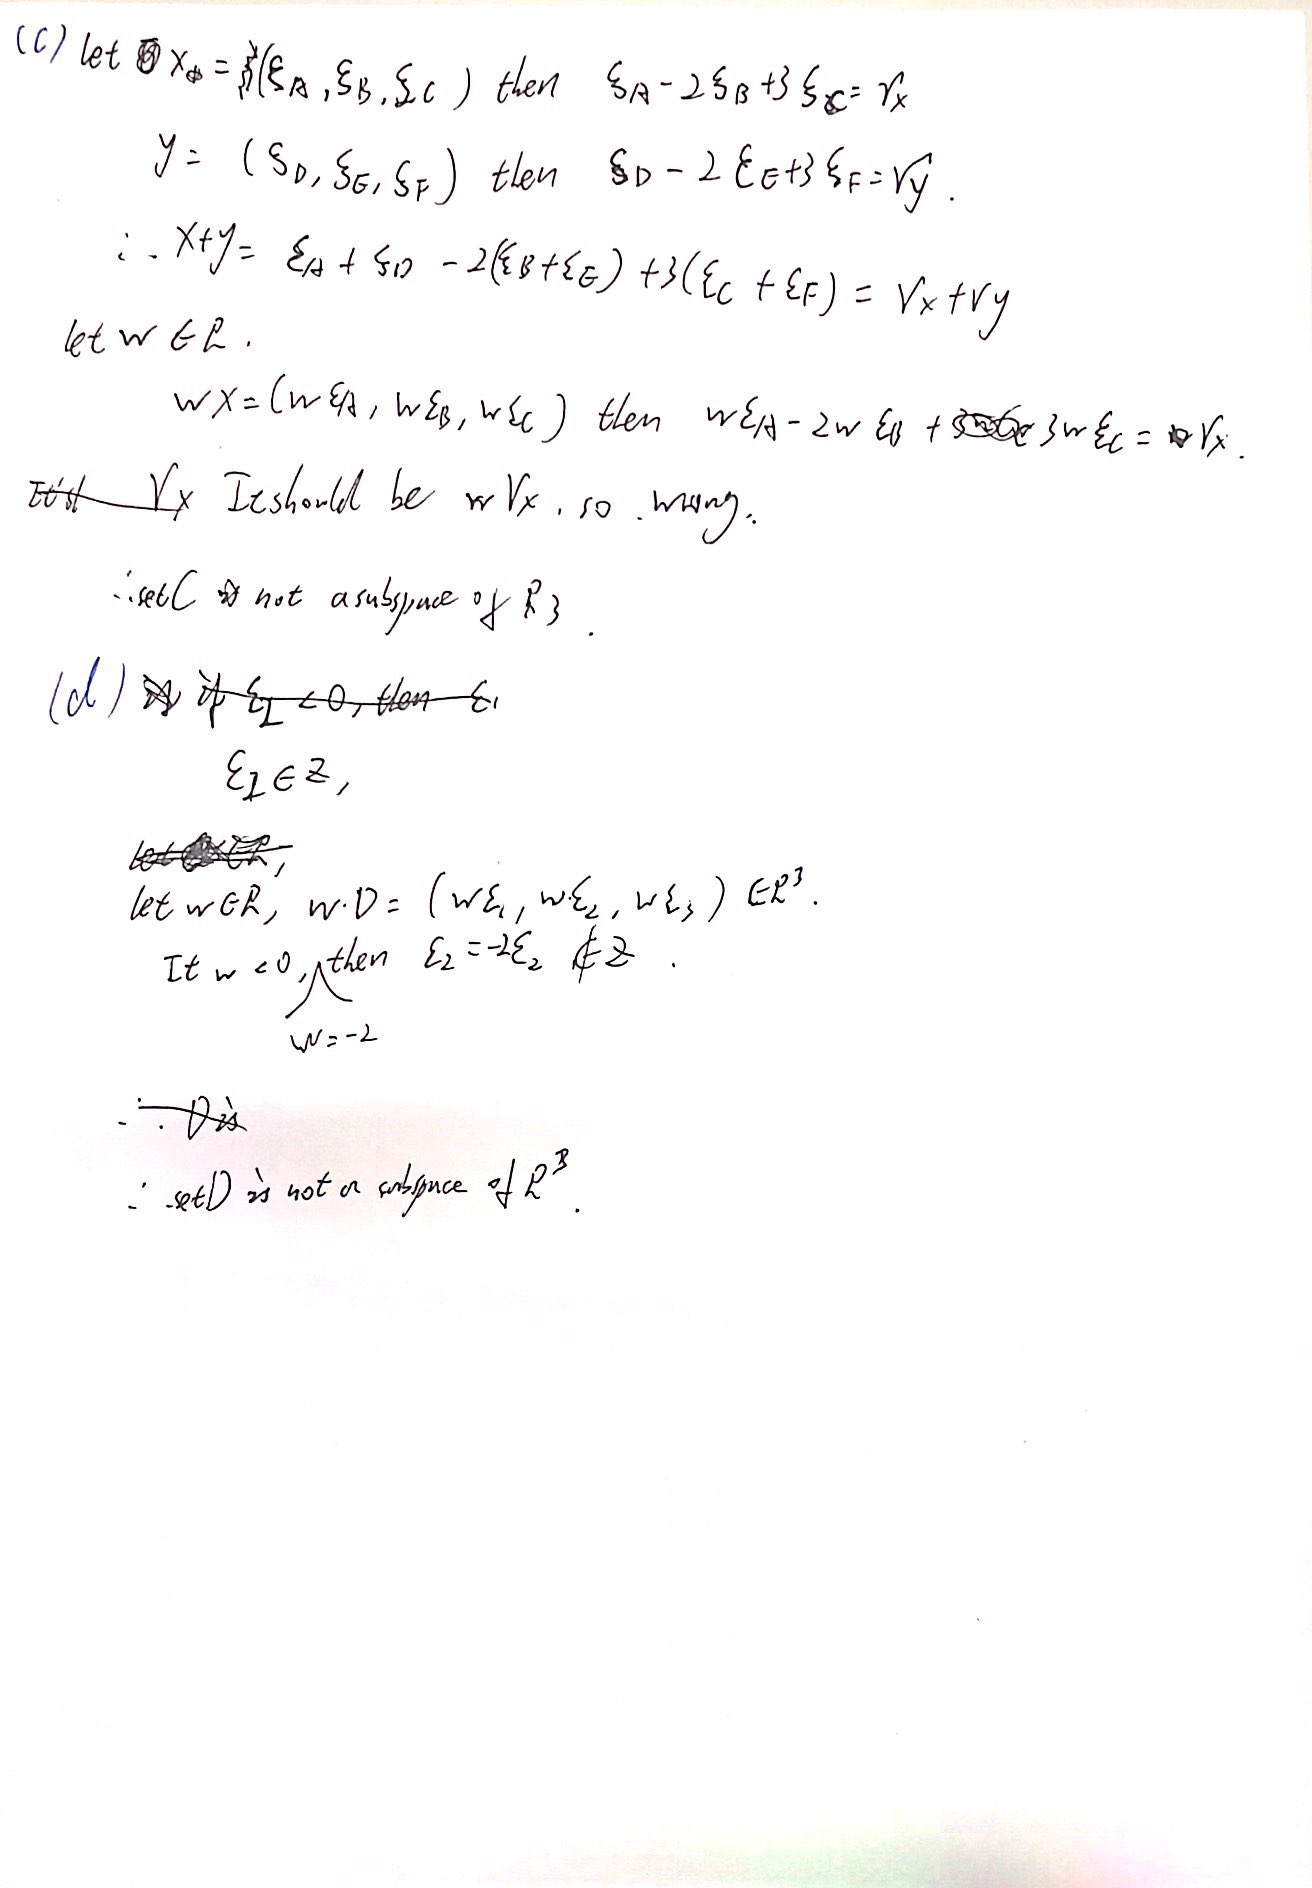 (c) let x = (ξA, ξB, ξC) then ξA - 2ξB + 3ξC = γx
y = (ξD, ξE, ξF) then ξD - 2ξE + 3ξF = γy.
∴ x+y = ξA + ξD - 2(ξB + ξE) + 3(ξC + ξF) = γx + γy
let w ∈ R.
wx = (wξA, wξB, wξC) then wξA - 2wξB + 3wξC = γx.
γx It should be wγx, so wrong.
∴ set C is not a subspace of R3.
(d) if ξ2 < 0, then ξ1
ξ2 ∈ Z,
let w ∈ R, w·D = (wξ1, wξ2, wξ3) ∈ R³.
It w < 0, then ξ2 = -2ξ2 ∉ Z.
w = -2
∴ D is
∴ set D is not a subspace of R³.